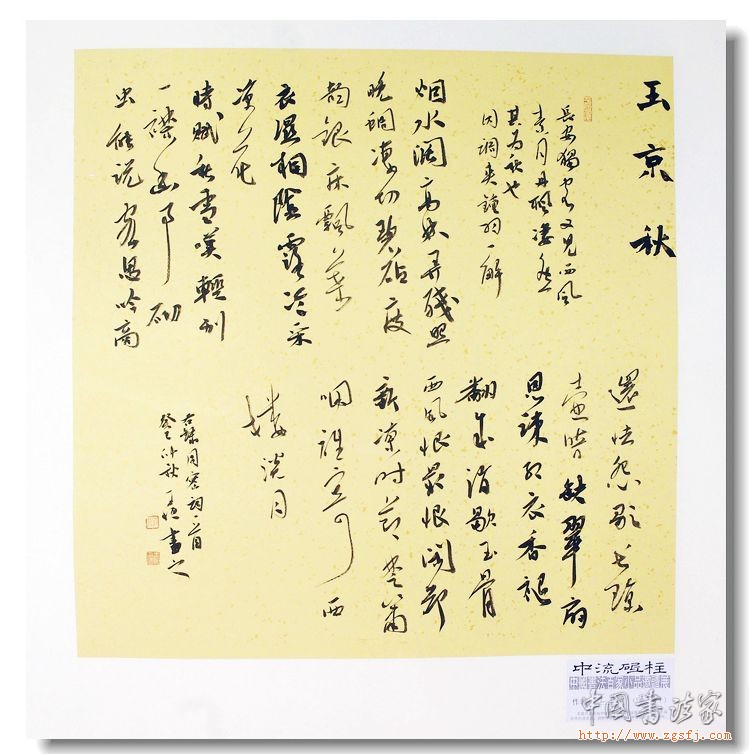 玉京秋
長安獨客又見西風
素月丹楓淒然
其為秋也
因調夾鍾羽一解
烟水闊高林弄殘照
晚蜩凄切碧砧度
韵銀床飄葉
衣濕桐陰露冷采
凉花
時賦秋雪嘆輕别
一襟幽事砌
虫能說客思吟商
還怯怨歌長瓊
壺暗缺翠扇
恩疎紅衣香褪
翻成消歇玉骨
西風恨最恨閑却
新凉時節楚簫
咽誰寄西
樓淡月
右錄周密詞一首
癸巳仲秋書之
中流砥柱
中國書法家
http://www.zgsfj.com